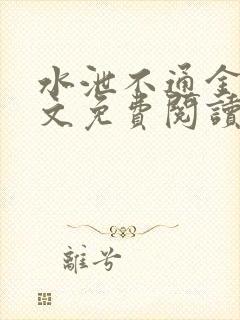 水泄不通全
文免費閱讀
離兮